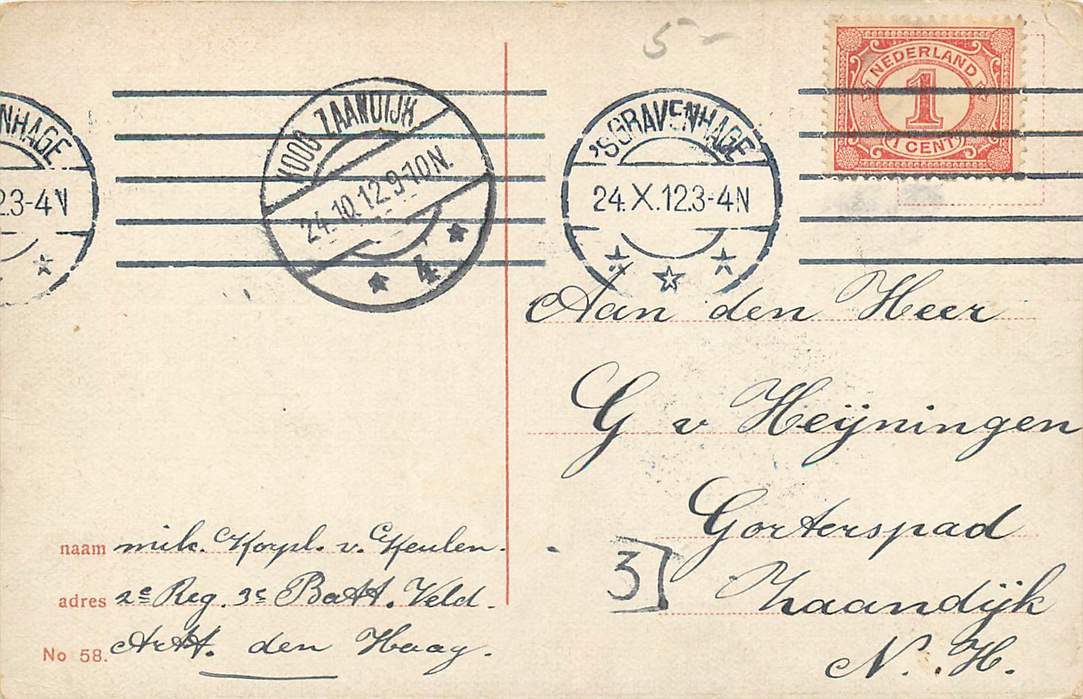 5-
NEDERLAND
1
1 CENT
NHAGE
23-4N
KOOG-ZAANDIJK.
24.10.12.9-10N.
4
'SGRAVENHAGE
24.X.12.3-4N
Aan den Heer
G v Heijningen
Gorterspad
3
Zaandijk
N. H.
naam milc. Korpl. v. Keulen.
adres 2e Reg. 3e Batt. Veld.
No 58. Artt. den Haag.